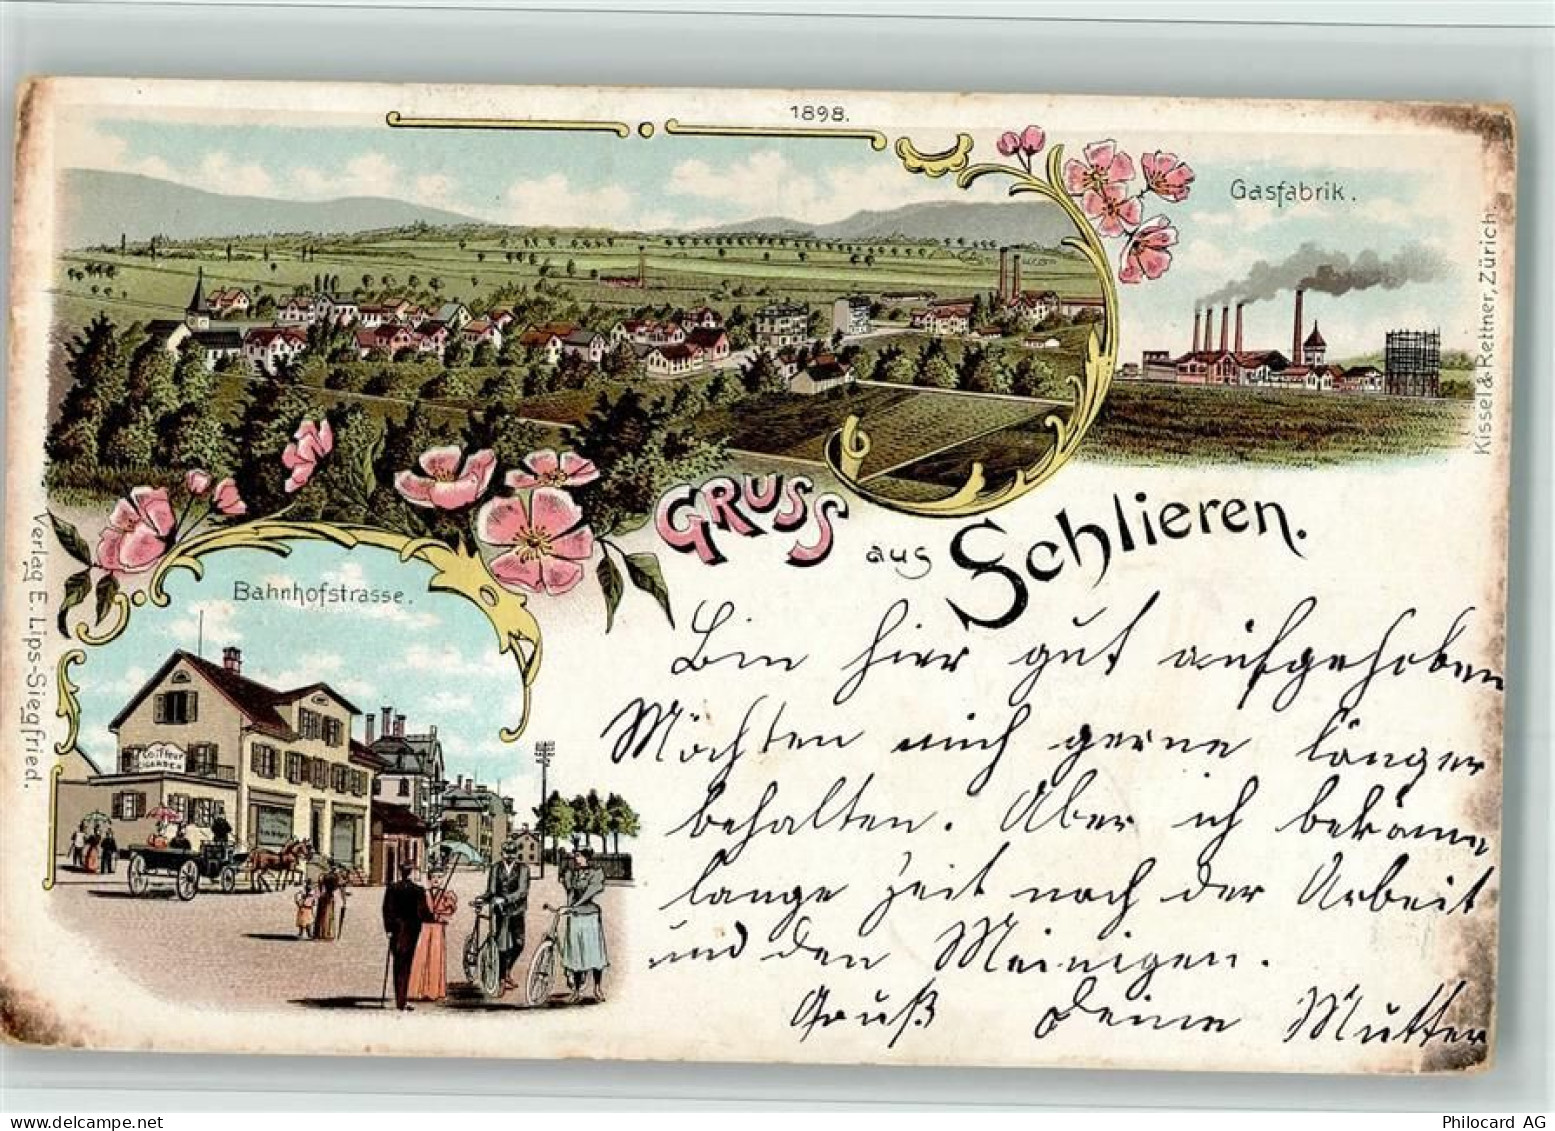 1898.
Gasfabrik.
Kissel & Rettner, Zürich.
Verlag E. Lips-Siegfried.
GRUSS aus Schlieren.
Bahnhofstrasse.
Coiffeur
CIGARREN
Bin hier gut aufgehoben
Möchten mich gerne länger
behalten. Aber ich bekäme
lange Zeit nach der Arbeit
und den Meinigen.
Gruß Deine Mutter
Philocard AG